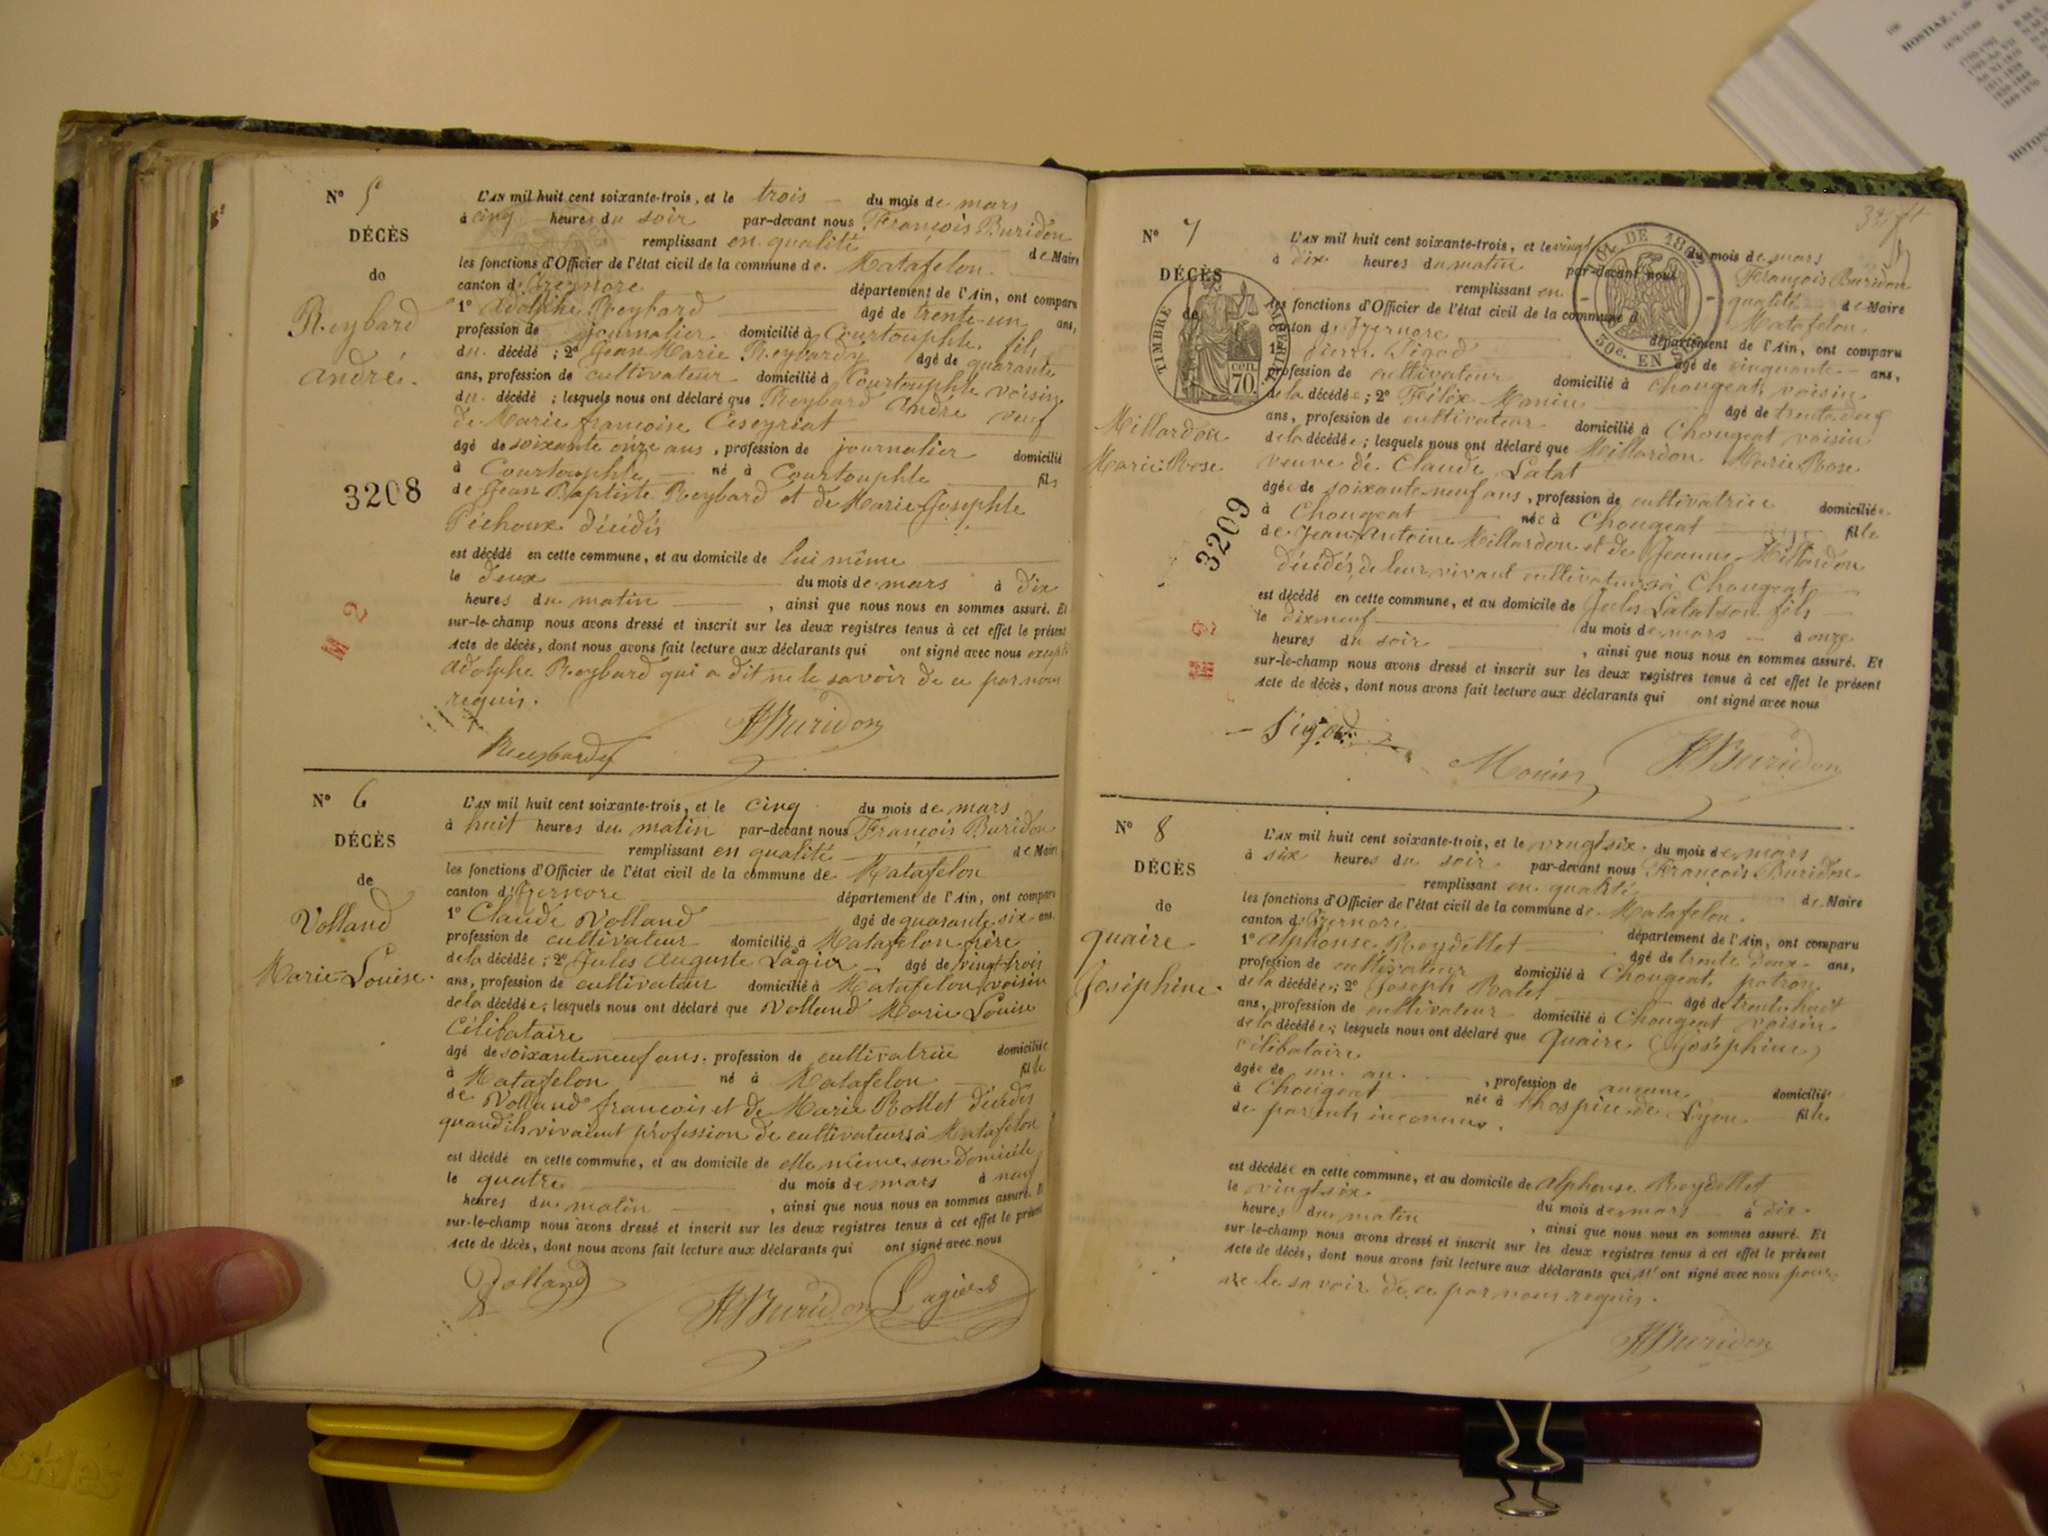 N° 5
DÉCÈS
de
Reybard
André.
L'AN mil huit cent soixante-trois, et le trois du mois de mars
à cinq heures du soir par-devant nous François Buridon
remplissant en qualité de Maire
les fonctions d'Officier de l'état civil de la commune de Matafelon
canton d'Izernore département de l'Ain, ont comparu
1° Adolphe Reybard âgé de trente-un ans,
profession de journalier domicilié à Courtouphle, fils
du décédé ; 2° Jean Marie Reybardy âgé de quarante
ans, profession de cultivateur domicilié à Courtouphle voisin
du décédé ; lesquels nous ont déclaré que Reybard André veuf
de Marie françoise Ceseyriat
âgé de soixante onze ans, profession de journalier domicilié
à Courtouphle né à Courtouphle fils
de Jean Baptiste Reybard et de Marie Josephte
Péchoux décédés
est décédé en cette commune, et au domicile de lui même
le deux du mois de mars à dix
heures du matin , ainsi que nous nous en sommes assuré. Et
sur-le-champ nous avons dressé et inscrit sur les deux registres tenus à cet effet le présent
acte de décès, dont nous avons fait lecture aux déclarants qui ont signé avec nous excepté
Adolphe Reybard qui a dit ne le savoir de ce par nous
requis.
Reybardy
Buridon
3208
M 2
N° 6
DÉCÈS
de
Volland
Marie Louise.
L'AN mil huit cent soixante-trois, et le cinq du mois de mars
à huit heures du matin par-devant nous François Buridon
remplissant en qualité de Maire
les fonctions d'Officier de l'état civil de la commune de Matafelon
canton d'Izernore département de l'Ain, ont comparu
1° Claude Volland âgé de quarante six ans.
profession de cultivateur domicilié à Matafelon frère
de la décédée ; 2° Jules Auguste Lagier âgé de vingt-trois
ans, profession de cultivateur domicilié à Matafelon voisin
de la décédée ; lesquels nous ont déclaré que Volland Marie Louise
célibataire
âgé de soixante neuf ans. profession de cultivatrice domiciliée
à Matafelon né à Matafelon fille
de Volland françois et de Marie Rollet décédés
quand ils vivaient profession de cultivateurs à Matafelon
est décédé en cette commune, et au domicile de elle même son domicile
le quatre du mois de mars à neuf
heures du matin , ainsi que nous nous en sommes assuré. Et
sur-le-champ nous avons dressé et inscrit sur les deux registres tenus à cet effet le présent
acte de décès, dont nous avons fait lecture aux déclarants qui ont signé avec nous
Volland
Buridon
Lagier
N° 7
DÉCÈS
de
Millardon
Marie Rose
TIMBRE IMPERIAL
70 cen.
LOI DE 1862
50c. EN SUS
L'AN mil huit cent soixante-trois, et le vingt du mois de mars
à dix heures du matin par-devant nous François Buridon
remplissant en qualité de Maire
les fonctions d'Officier de l'état civil de la commune de Matafelon
canton d'Izernore département de l'Ain, ont comparu
1° Pierre Sigod âgé de cinquante ans,
profession de cultivateur domicilié à Chougeat, voisin
de la décédée ; 2° Félix Monin âgé de trente neuf
ans, profession de cultivateur domicilié à Chougeat voisin
de la décédée ; lesquels nous ont déclaré que Millardon Marie Rose
veuve de Claude Latat
âgée de soixante neuf ans, profession de cultivatrice domiciliée
à Chougeat née à Chougeat fille
de Jean Antoine Millardon et de Jeanne Millardon
décédés, de leur vivant cultivateurs à Chougeat
est décédé en cette commune, et au domicile de Jules Latat son fils
le dix neuf du mois de mars à onze
heures du soir , ainsi que nous nous en sommes assuré. Et
sur-le-champ nous avons dressé et inscrit sur les deux registres tenus à cet effet le présent
acte de décès, dont nous avons fait lecture aux déclarants qui ont signé avec nous
Sigod
Monin
Buridon
3209
N° 8
DÉCÈS
de
Quaire
Joséphine.
L'AN mil huit cent soixante-trois, et le vingt six du mois de mars
à six heures du soir par-devant nous François Buridon
remplissant en qualité de Maire
les fonctions d'Officier de l'état civil de la commune de Matafelon.
canton d'Izernore département de l'Ain, ont comparu
1° Alphonse Reydellet âgé de trente deux ans,
profession de cultivateur domicilié à Chougeat, patron
de la décédée ; 2° Joseph Balet âgé de trente huit
ans, profession de cultivateur domicilié à Chougeat voisin
de la décédée ; lesquels nous ont déclaré que Quaire Joséphine
célibataire
âgée de un an. , profession de aucune domiciliée
à Chougeat née à l'hospice de Lyon fille
de parents inconnus.
est décédée en cette commune, et au domicile de Alphonse Reydellet
le vingt six du mois de mars à dix
heures du matin , ainsi que nous nous en sommes assuré. Et
sur-le-champ nous avons dressé et inscrit sur les deux registres tenus à cet effet le présent
acte de décès, dont nous avons fait lecture aux déclarants qui n'ont signé avec nous pour
ne le savoir de ce par nous requis.
Buridon
HOSTIAZ